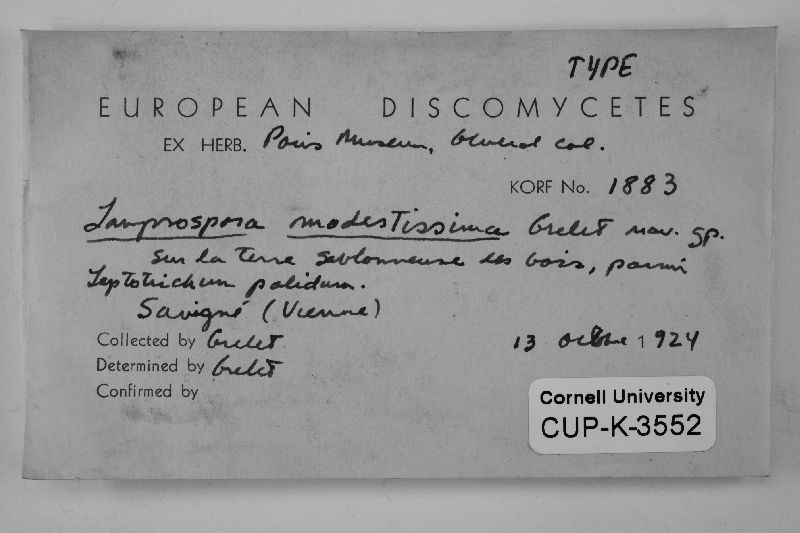 TYPE
EUROPEAN DISCOMYCETES
EX HERB. Paris Museum, General col.
KORF No. 1883
Lamprospora modestissima Grelet nov. sp.
Sur la terre sablonneuse des bois, parmi
Leptotrichum palidum.
Savigné (Vienne)
Collected by Grelet 13 octbre 1924
Determined by Grelet
Confirmed by
Cornell University
CUP-K-3552